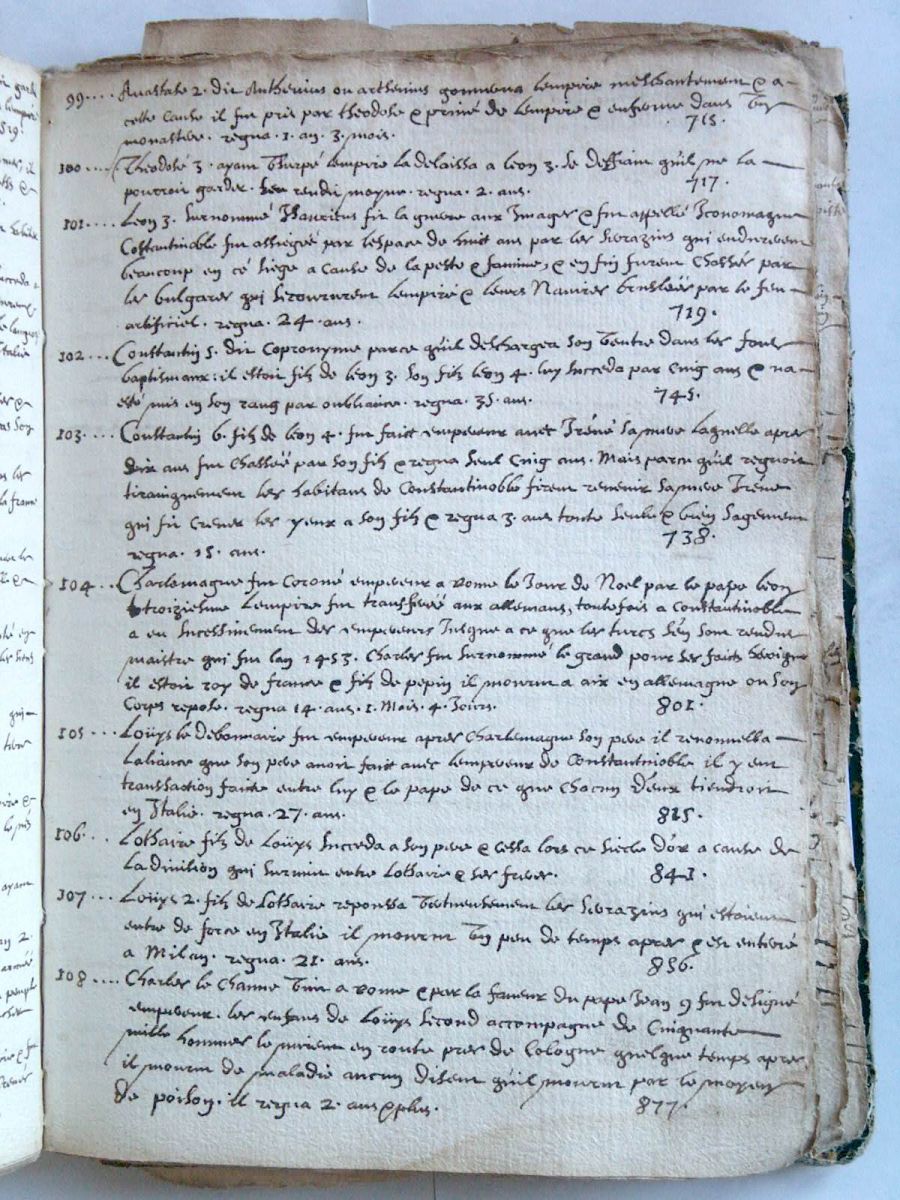 99.... Anastase 2. dit Anthemius ou arthemius gouuerna lempire meschantement & a
cette cause il fut pris par theodose & priué de lempire & enfermé dans vn
monastere. regna. 1. an. 3. mois. 715.
100.... Theodose 3. ayant vsurpé lempire la delaissa a leon 3. se deffiant quil ne la
pourroit garder. rendu moyne. regna. 2. ans. 717.
101.... Leon 3. surnommé Isauricus fit la guerre aux Images & fut appellé Iconomaque
Costantinoble fut assiegeé par lespace de huict ans par les sarazins qui endurerent
beaucoup en cé siege a cause de la peste & famine, & en fin furent chassés par
les bulgares qui secoururent lempire & leurs Nauires brusleés par le feu
artificiel. regna. 24. ans. 719.
102... Constantin 5. dit Copronyme parce quil deschargea son ventre dans les fons
baptismaux: il estoit filz de leon 3. son filz leon 4. luy succeda par cinq ans & na
esté mis en son rang par oubliance. regna. 35. ans. 745.
103.... Constantin 6. filz de leon 4. fut faict empereur auec Iréné sa mere laquelle apres
dix ans fut chasseé par son filz & regna seul cinq ans. Mais parce quil regnoit
tiraniquement les habitans de Constantinoble firent reuenir sa mere Iréne
qui fit creuer les yeux a son filz & regna 3. ans toute seule & bien sagement
regna. 15. ans. 738.
104.... Charlemagne fut coroné empereur a rome le Iour de Noel par le pape leon
troiziesme lempire fut transferé aux allemans, toutefois a constantinoble
a eu successiuement des empereurs Iusque a ce que les turcs sén sont rendus
maistre qui fut lan 1453. Charles fut surnommé le grand pour ses faits heroique
il estoit roy de france & filz de pepin il mourut a aix en allemagne ou son
corps repose. regna 14. ans. 1. Mois. 4. Jours. 801.
105... Loüys le debonnaire fut empereur apres Charlemagne son pere il renouuella
laliance que son pere auoit fait auec lempereur de Constantinoble il y eut
transaction faicte entre luy & le pape de ce que chacun d'eux tiendroit
en Italie. regna. 27. ans. 815.
106. Lothaire filz de Loüys succeda a son pere & cessa lors ce siecle dór a cause de
la diuision qui suruint entre lothaire & ses freres. 841.
107... Loüys 2. filz de Lothaire repoussa les sarazins qui estoient
entre de force en Italie il mourut vn peu de temps apres & est enterré
a Milan. regna. 21. ans. 856.
108.... Charles le chauue vint a rome & par la faueur du pape Jean 9 fut designé
empereur. les enfans de Loüys second accompagne de cinquante
mille hommes le mirent en route pres de cologne quelque temps apres
il mourut de maladie aucun disent quil mourut par le moyen
de poison. il regna 2. ans & plus. 877.